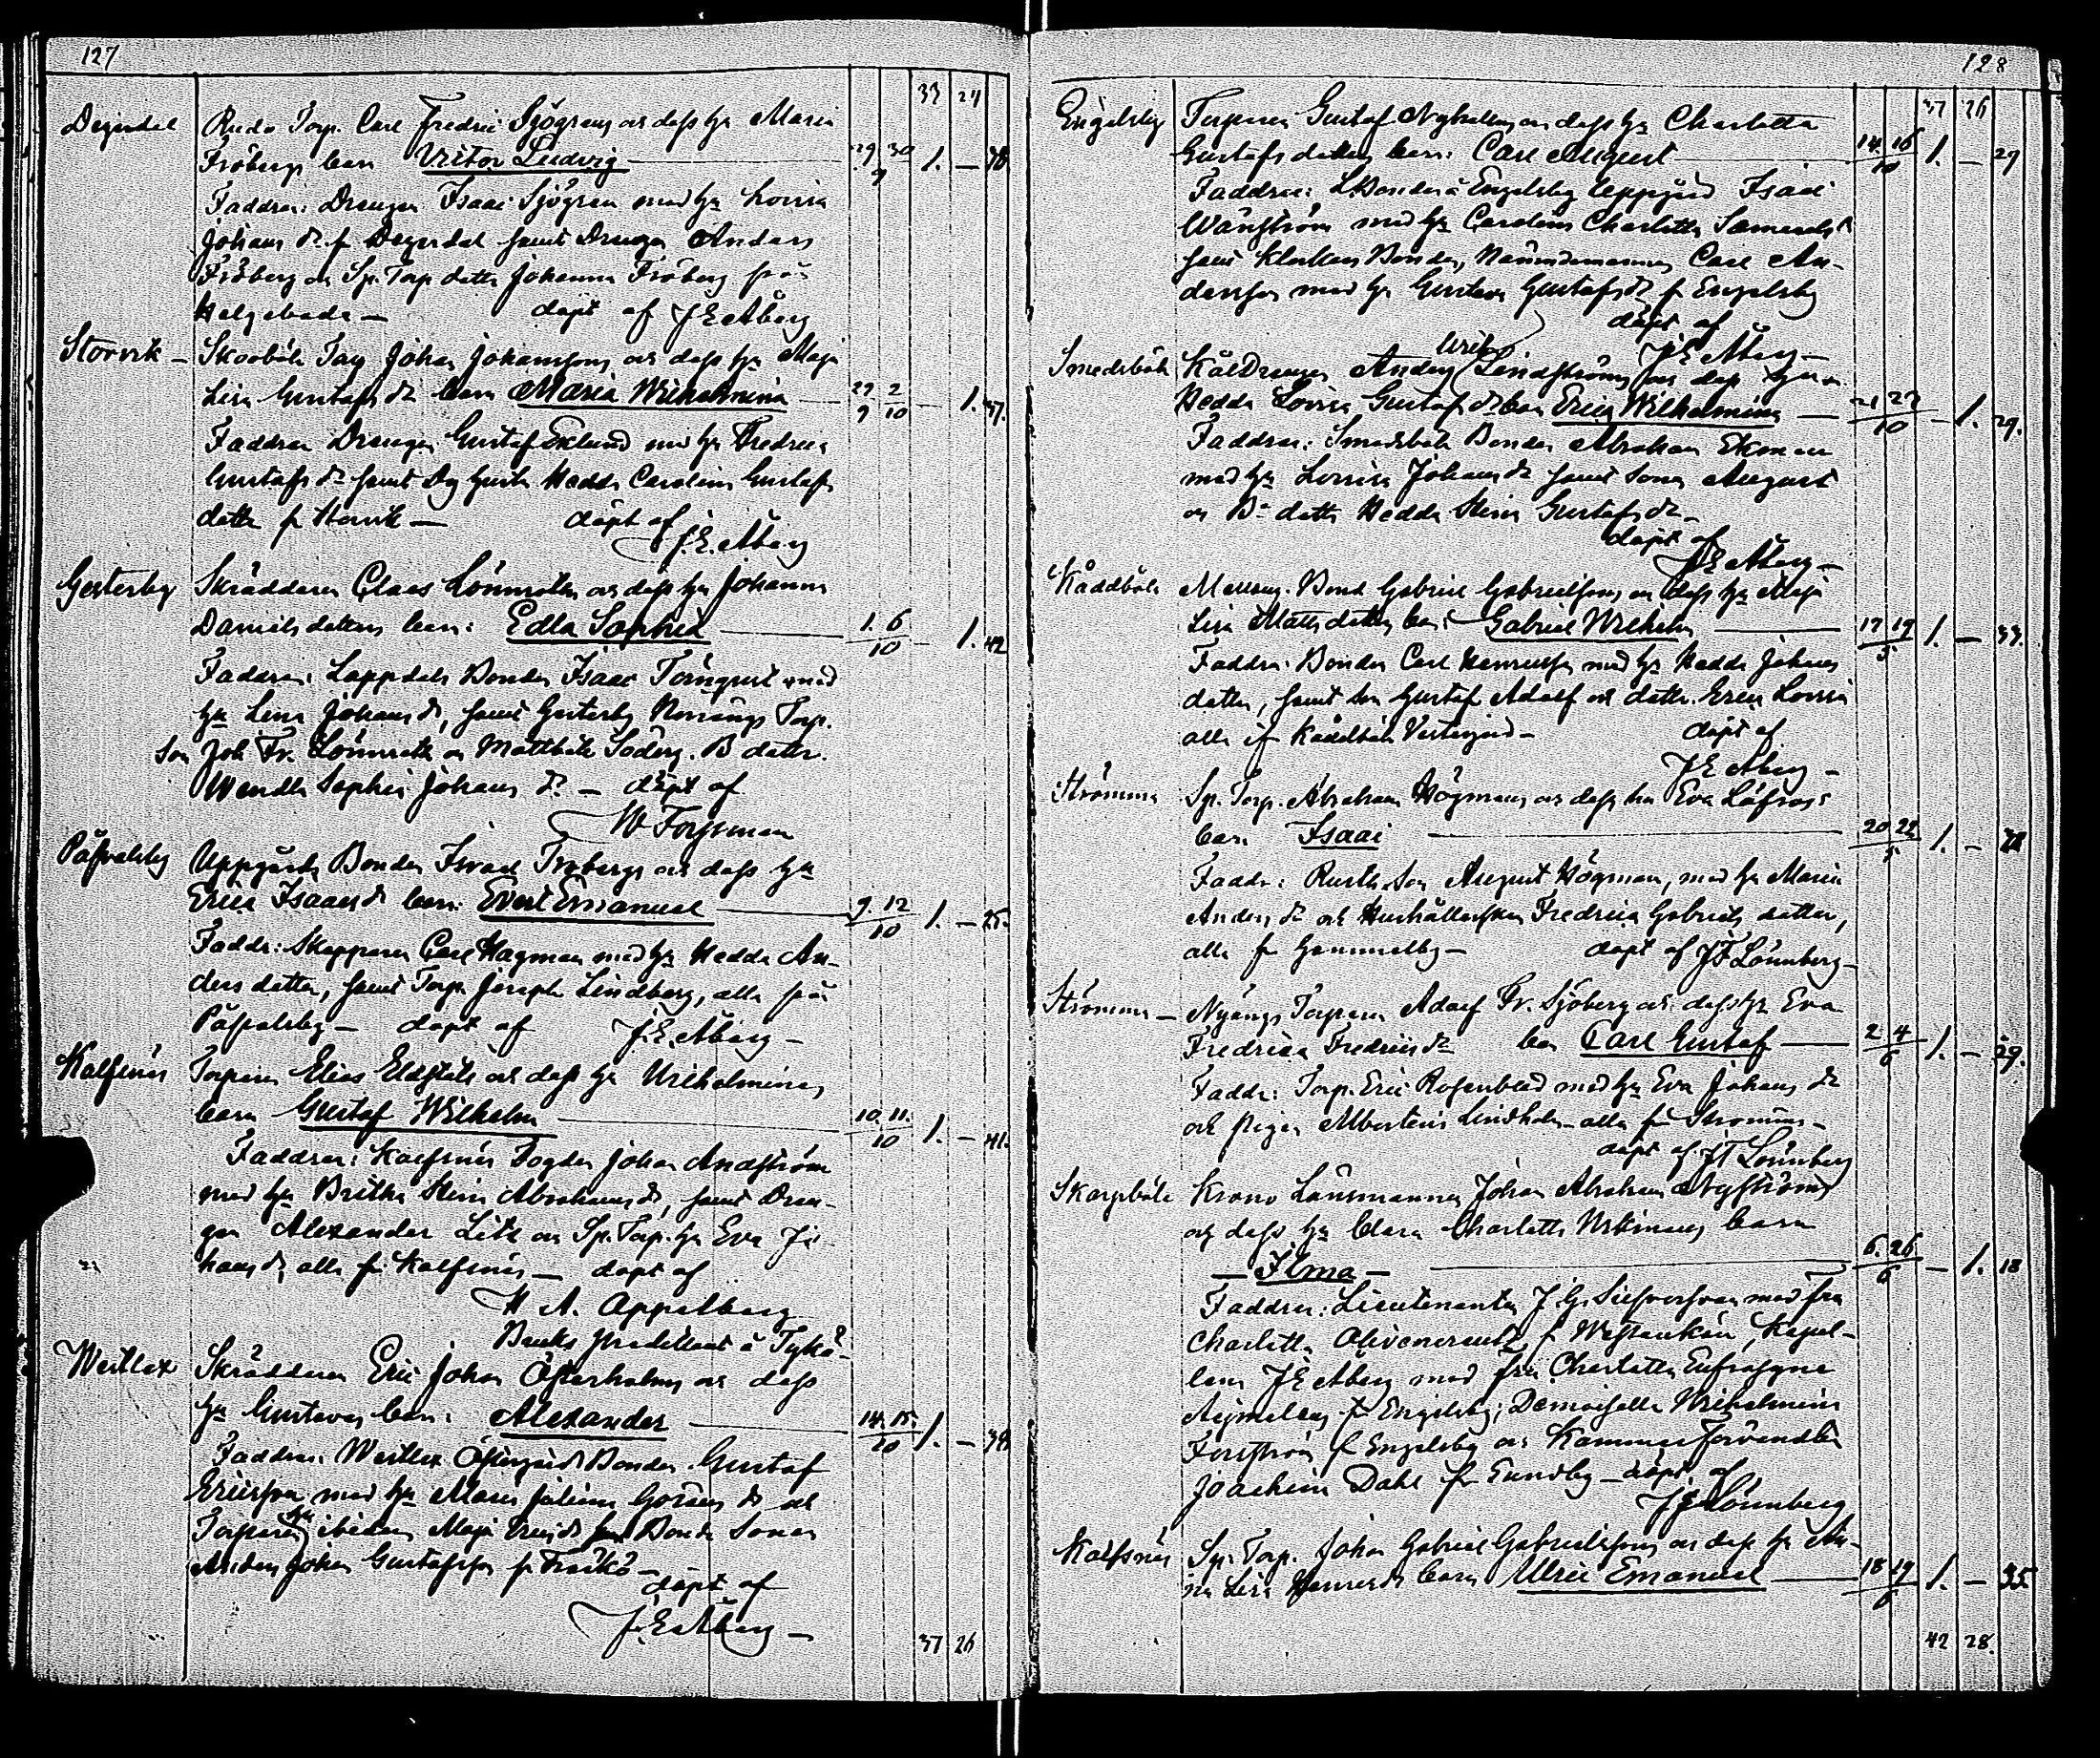 127
33 24
Degerdal Ruda Torp. Carl Fredric Sjögrens och dess hu Maria
Frobergs barn Victor Ludvig 29 30 / 9 1. — 38.
Faddrar: Drengen Isaac Sjögren med hu Lovisa
Johans dr fr Degerdal samt Drengen Anders
Fröberg och Sp. Torp dotter Johanna Fröberg från
Helgeboda — döpt af J E Åberg
Storvik — Skoböle Johan Johanssons och dess hu Maja
Lisa Gustafs dr barn Maria Wilhelmina 29 2 / 9 10 — 1. 37.
Faddrar Drengen Gustaf Eklund med hu Fredrica
Gustafs dr samt Hedda Carolina Gustafs
dotter fr Storvik — döpt af
J. E. Åberg
Gesterby Skräddaren Claes Lönnroths och dess hu Johanna
Daniels dotters barn: Edla Sophia 1. 6 / 10 — 1. 42
Faddrar: Lappdals Bonden Isaac Törnqvist med
hu Lena Johans dr, samt Gesterby Torp.
Son Joh Fr. Lönnroth och Mattböle Söderg. B dotter.
Wendla Sophia Johans dr — döpt af
W Forssman
Påfvalsby Uppgårds Bonden Isracl Frobergs och dess hu
Erica Isaacs dr barn: Evert Emanuel 9. 12 / 10 1. — 25.
Faddr: Skepparen Carl Hagman med hu Hedda An-
ders dotter, samt Torp. Joseph Lindberg, alla från
Påfvalsby — döpt af J. E. Åberg —
Kalfsnäs Torparen Elias Eldståls och dess hu Wilhelminas
barn Gustaf Wilhelm 10. 11. / 10 1. — 41.
Faddrar: Kalfsnäs Fogden Johan Andström
med hu Britha Stina Abrahams dr, samt Dren-
gen Alexander Lilk och Sp. Torp. hu Eva Jo-
hans dr, alla fr Kalfsnäs — döpt af
H A. Appelberg
Bruks predikant å Tykö.
Westlax Skräddaren Eric Johan Österholms och dess
hu Gustavas barn: Alexander 14. 15. / 10 1. — 38
Faddrar: Westlax Östergårds Bonden Gustaf
Ericsson med hu Maria Juliana Görans dr och
Torpare hu ibidem Maja samt Bonde Sonen
Anders Johan Gustafsson fr Fråskö —
döpt af
J. E Åberg —
37 26
128
37 26
Engelsby Torparen Gustaf Nyholms och dess hu Charlotta
Gustafs dotters barn: Carl August 14. 16 / 10 1. — 29
Faddrar: Bonden å Engelsby Uppgård Isaac
Wänström med hu Carolina Charlotta
samt Bonden, Nämndemannen Carl An-
dersson med hu Gustava Gustafs dr fr Engelsby
döpt af
J E Åberg —
Smedsböle Anders Ulrik Lindströms och dess hu
Hedda Lovisa Gustafs dr barn Erica Wilhelmina 21 22 / 10 — 1. 29.
Faddrar: Smedsböle Bonden Abraham Ekman
med hu Lovisa Johans dr samt Sonen August
och B- dotter Hedda Stina Gustafs dr —
döpt af
J E Åberg —
Kåddböle Bond Gabriel Gabrielssons och dess hu Maja
Lisa Matts dotters barn Gabriel Wilhelm 17 19 / 5 1. — 33.
Faddrar: Bonden Carl Henricsson med hu Hedda Johans
dotter, samt Son Gustaf Adolf och dotter Erica Lovisa
alla ifr Kåddböle Vestergård — döpt af
J E Åberg —
Strömma Sp. Torp. Abraham Högmans och dess hu Eva
barn Isaac 20 22 / 5 1. —
Faddr: Rusth. Son August Högman, med hu Maria
Anders dr och Hushållerskan Fredrica Gabriels dotter,
alla fr Gammelby — döpt af J F Lönnberg —
Strömma — Nyängs Torparen Adolf Fr. Sjöberg och dess hu Eva
Fredrica Fredrics dr barn Carl Gustaf 2 4 / 6 1. — 29.
Faddr: Torp. Eric Rosenblad med hu Eva Johans dr
och Pigan Albertina Lindholm — alla fr Strömma —
döpt af J F Lönnberg
Skarpböle Krono Länsmannen Johan Abraham Nyströms
och dess hu Clara Charlotta barn
— Ilma — 6. 26 / 6 — 1. 18
Faddrar: Lieutenanten J. G. med fru
Charlotta fr Westankärr, Kapel-
lan J E Åberg med fru Charlotta Eufrosyne
fr Engelsby; Demoiselle Wilhelmina
Forsström fr Engelsby och Kammarförvandten
Joachim Dahl fr Sundby — döpt af
J F Lönnberg
Kalfsnäs Sp. Torp. Johan Gabriel Gabrielssons och dess hu An-
na Lisa Henrics dr barn Ulric Emanuel 18 19 1. — 35.
42 28.